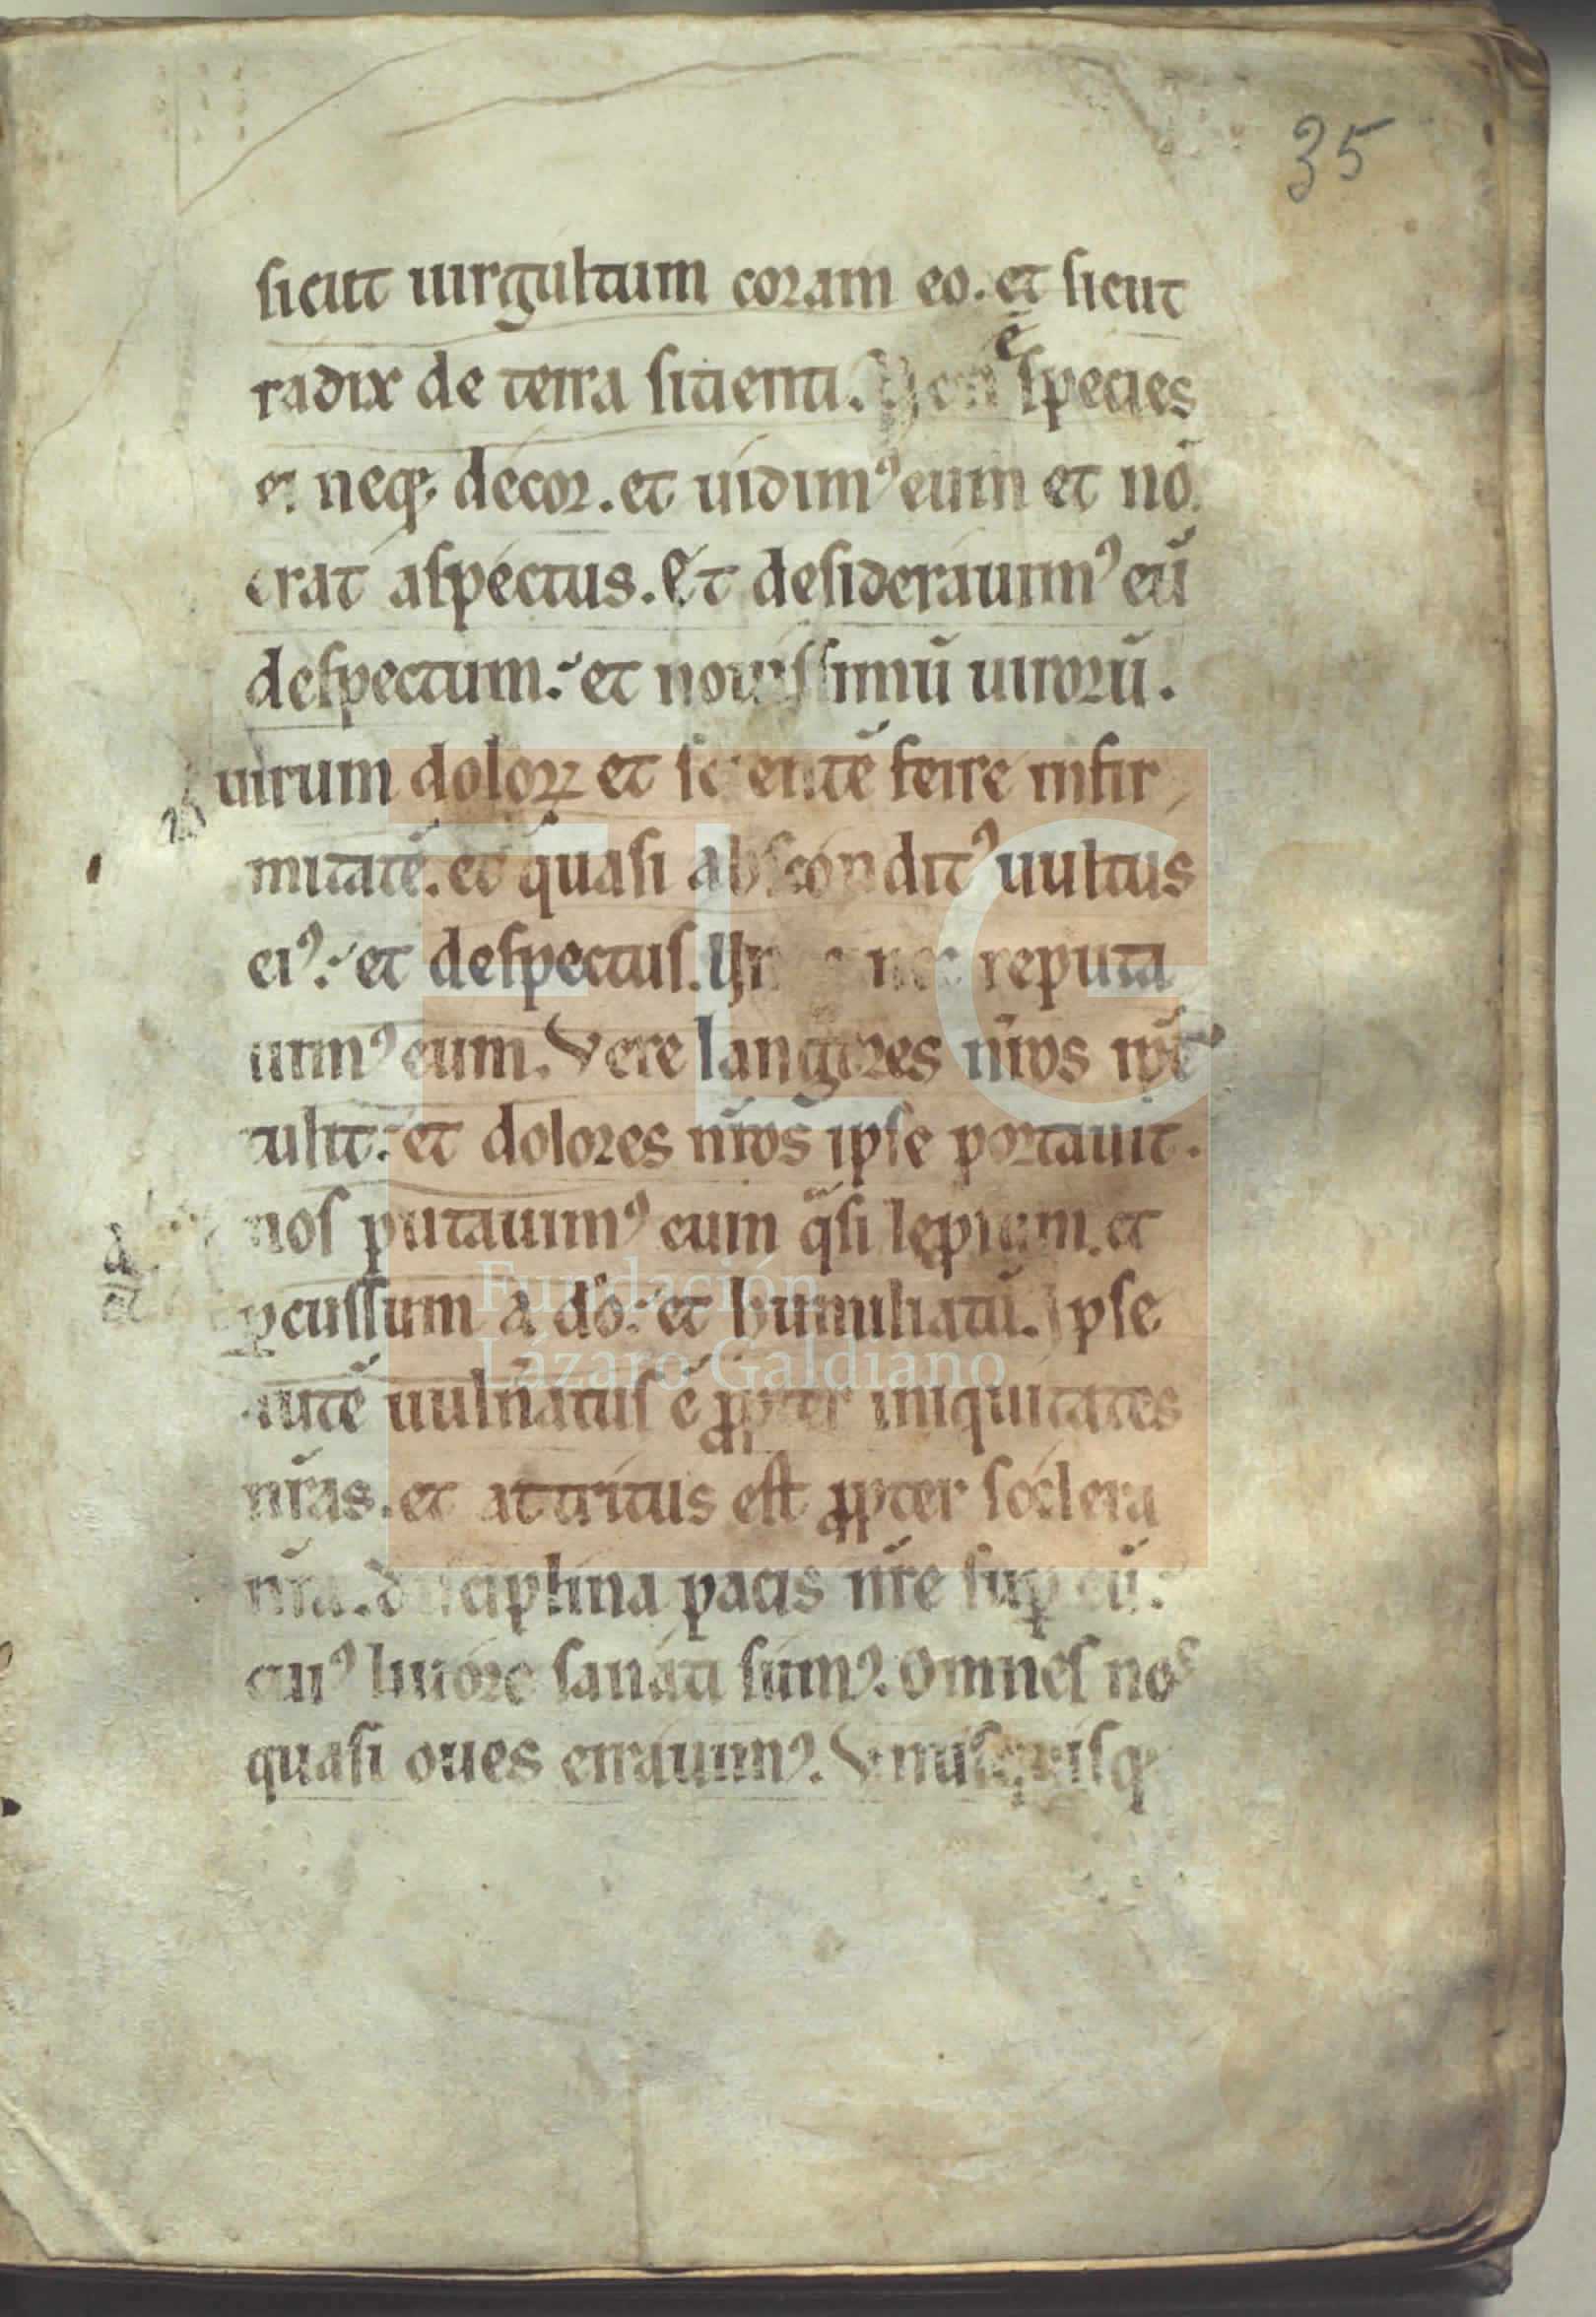 35
sicut uirgultum coram eo. et sicut
radix de terra sitienti. Non ē species
ei neq; decor. et uidimꝰ eum et nō
erat aspectus. Et desiderauimꝰ eū
despectum. et nouissimū uirorū.
uirum doloꝝ et scientē ferre infir
mitatē. et quasi absconditꝰ uultus
eiꝰ. et despectus. Vn nec reputa
uimꝰ eum. Vere langores nr̄os ip̄e
tulit. et dolores nr̄os ipse portauit.
nos putauimꝰ eum qͣsi leprosum. et
ꝑcussum a dō. et humiliatū. Ipse
autē uuln̄atus ē ꝓpter iniquitates
nr̄as. et attritus est ꝓpter scelera
nr̄a. disciplina pacis nr̄e suꝑ eū.
cuiꝰ liuore sanati sumꝰ. Omnes nos
quasi oues errauimꝰ. Vnusquisq;
FLG
Fundación
Lázaro Galdiano